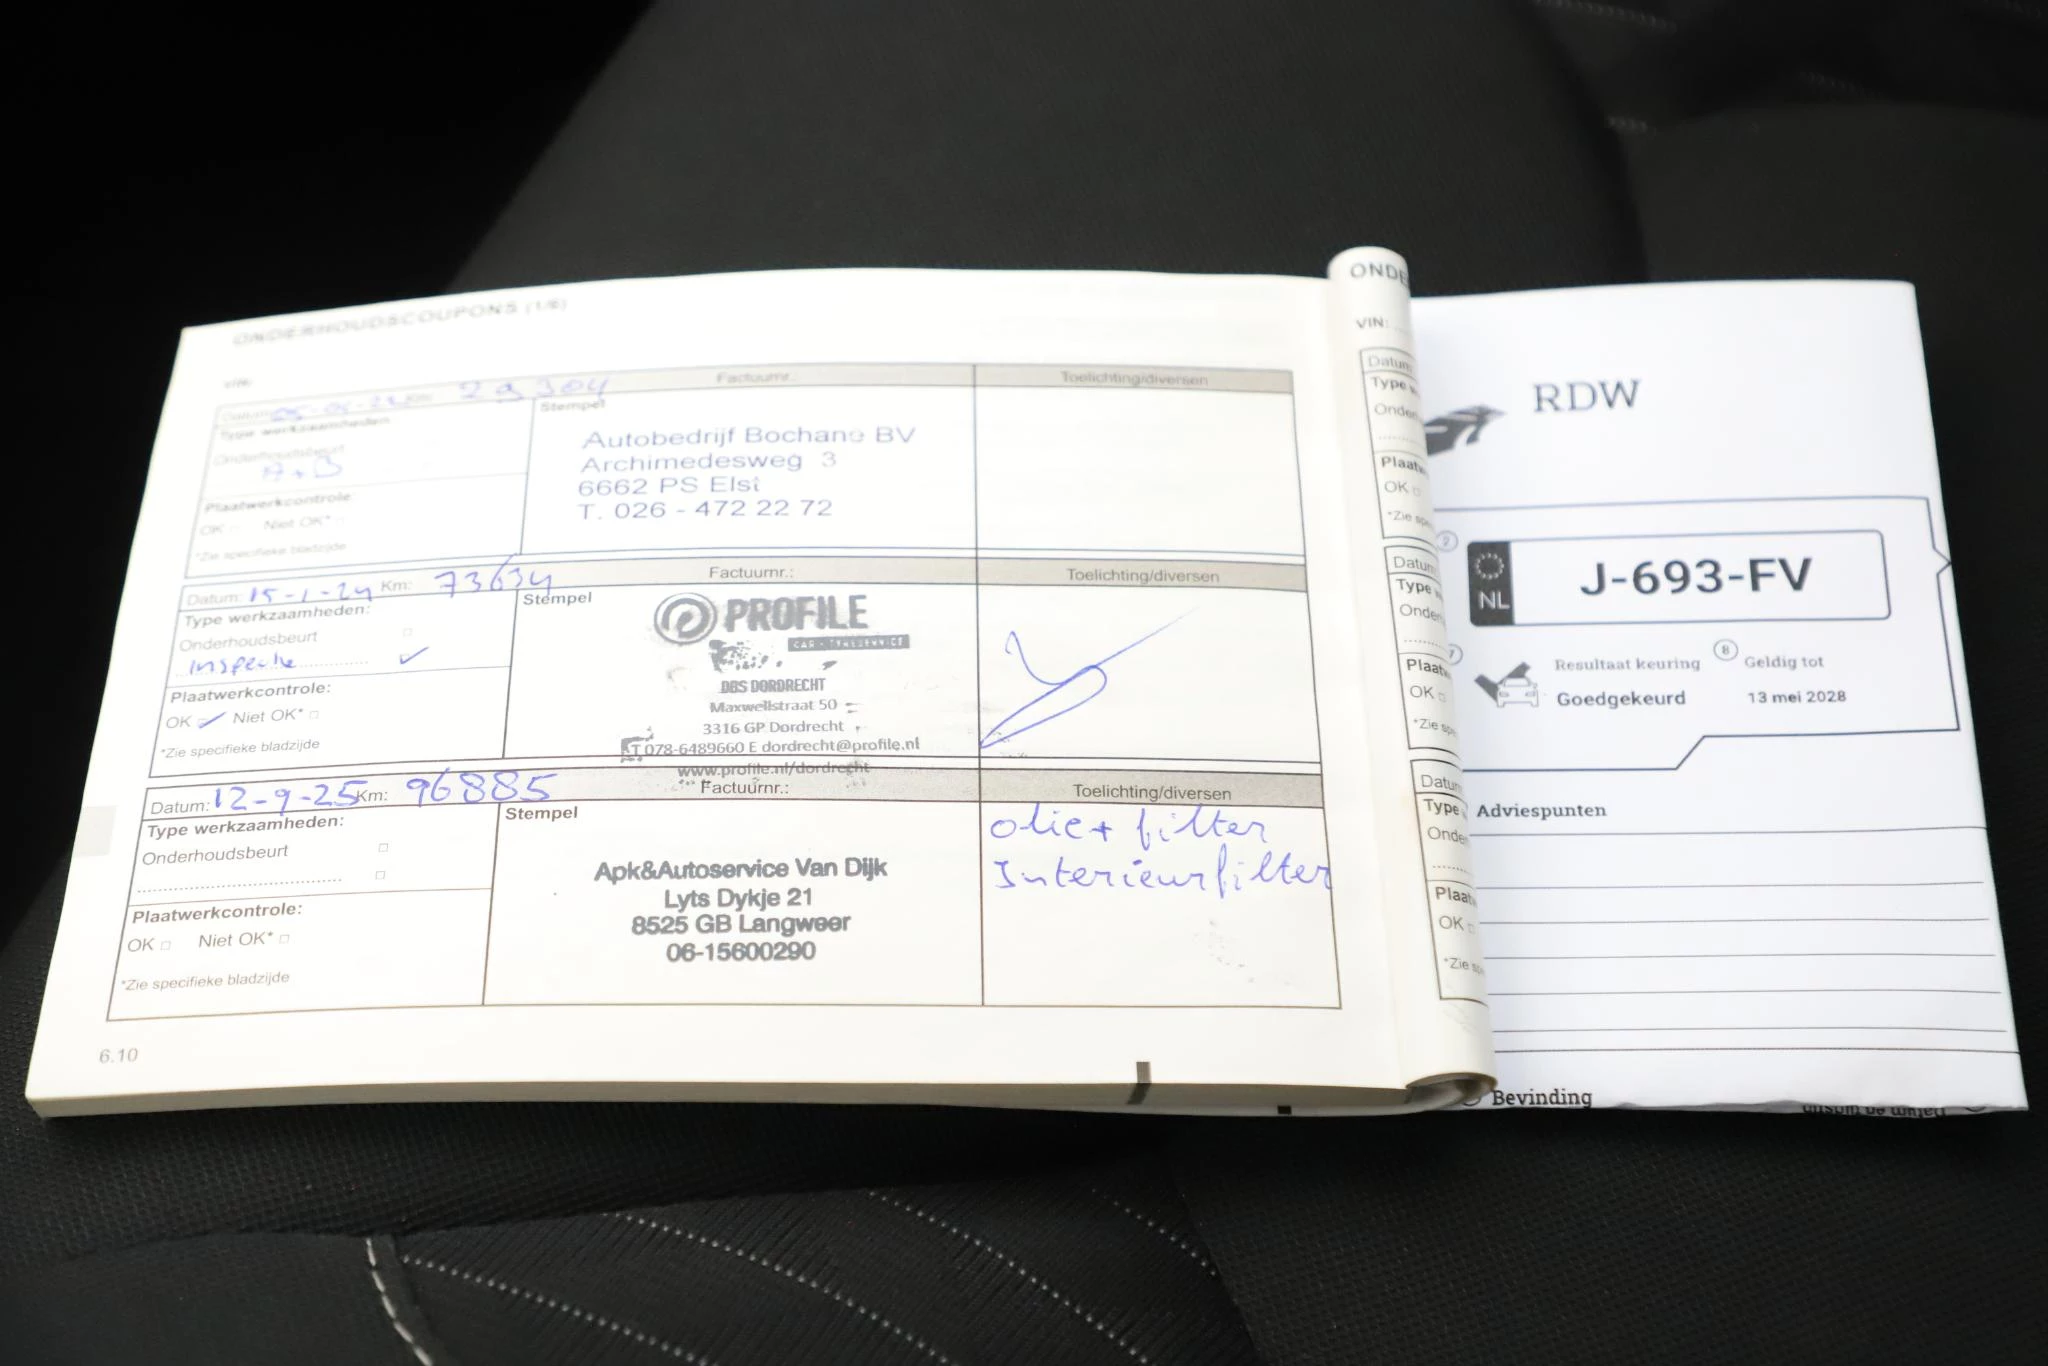 ONDERHOUDSCOUPONS (1/6)
VIN:
Datum: Km: 29304 Factuurnr.: Toelichting/diversen
Type werkzaamheden
Onderhoudsbeurt
A+B
Plaatwerkcontrole:
OK Niet OK*
*Zie specifieke bladzijde
Stempel
Autobedrijf Bochane BV
Archimedesweg 3
6662 PS Elst
T. 026 - 472 22 72
Datum: 15-1-24 Km: 73634 Factuurnr.: Toelichting/diversen
Type werkzaamheden:
Onderhoudsbeurt
Inspectie
Plaatwerkcontrole:
OK Niet OK*
*Zie specifieke bladzijde
Stempel
PROFILE
CAR - TYRESERVICE
DBS DORDRECHT
Maxwellstraat 50
3316 GP Dordrecht
T 078-6489660 E dordrecht@profile.nl
www.profile.nl/dordrecht
Datum: 12-9-25 Km: 96885 Factuurnr.: Toelichting/diversen
Type werkzaamheden:
Onderhoudsbeurt
Plaatwerkcontrole:
OK Niet OK*
*Zie specifieke bladzijde
Stempel
Apk&Autoservice Van Dijk
Lyts Dykje 21
8525 GB Langweer
06-15600290
olie + filter
Interieurfilter
6.10
ONDE
VIN:
Datum
Type
Onde
Plaat
OK
*Zie
Datum
Type
Onde
Plaat
OK
*Zie
Datum
Type
Onde
Plaat
OK
*Zie
RDW
2
NL
J-693-FV
7 Resultaat keuring 8 Geldig tot
Goedgekeurd 13 mei 2028
Adviespunten
Bevinding